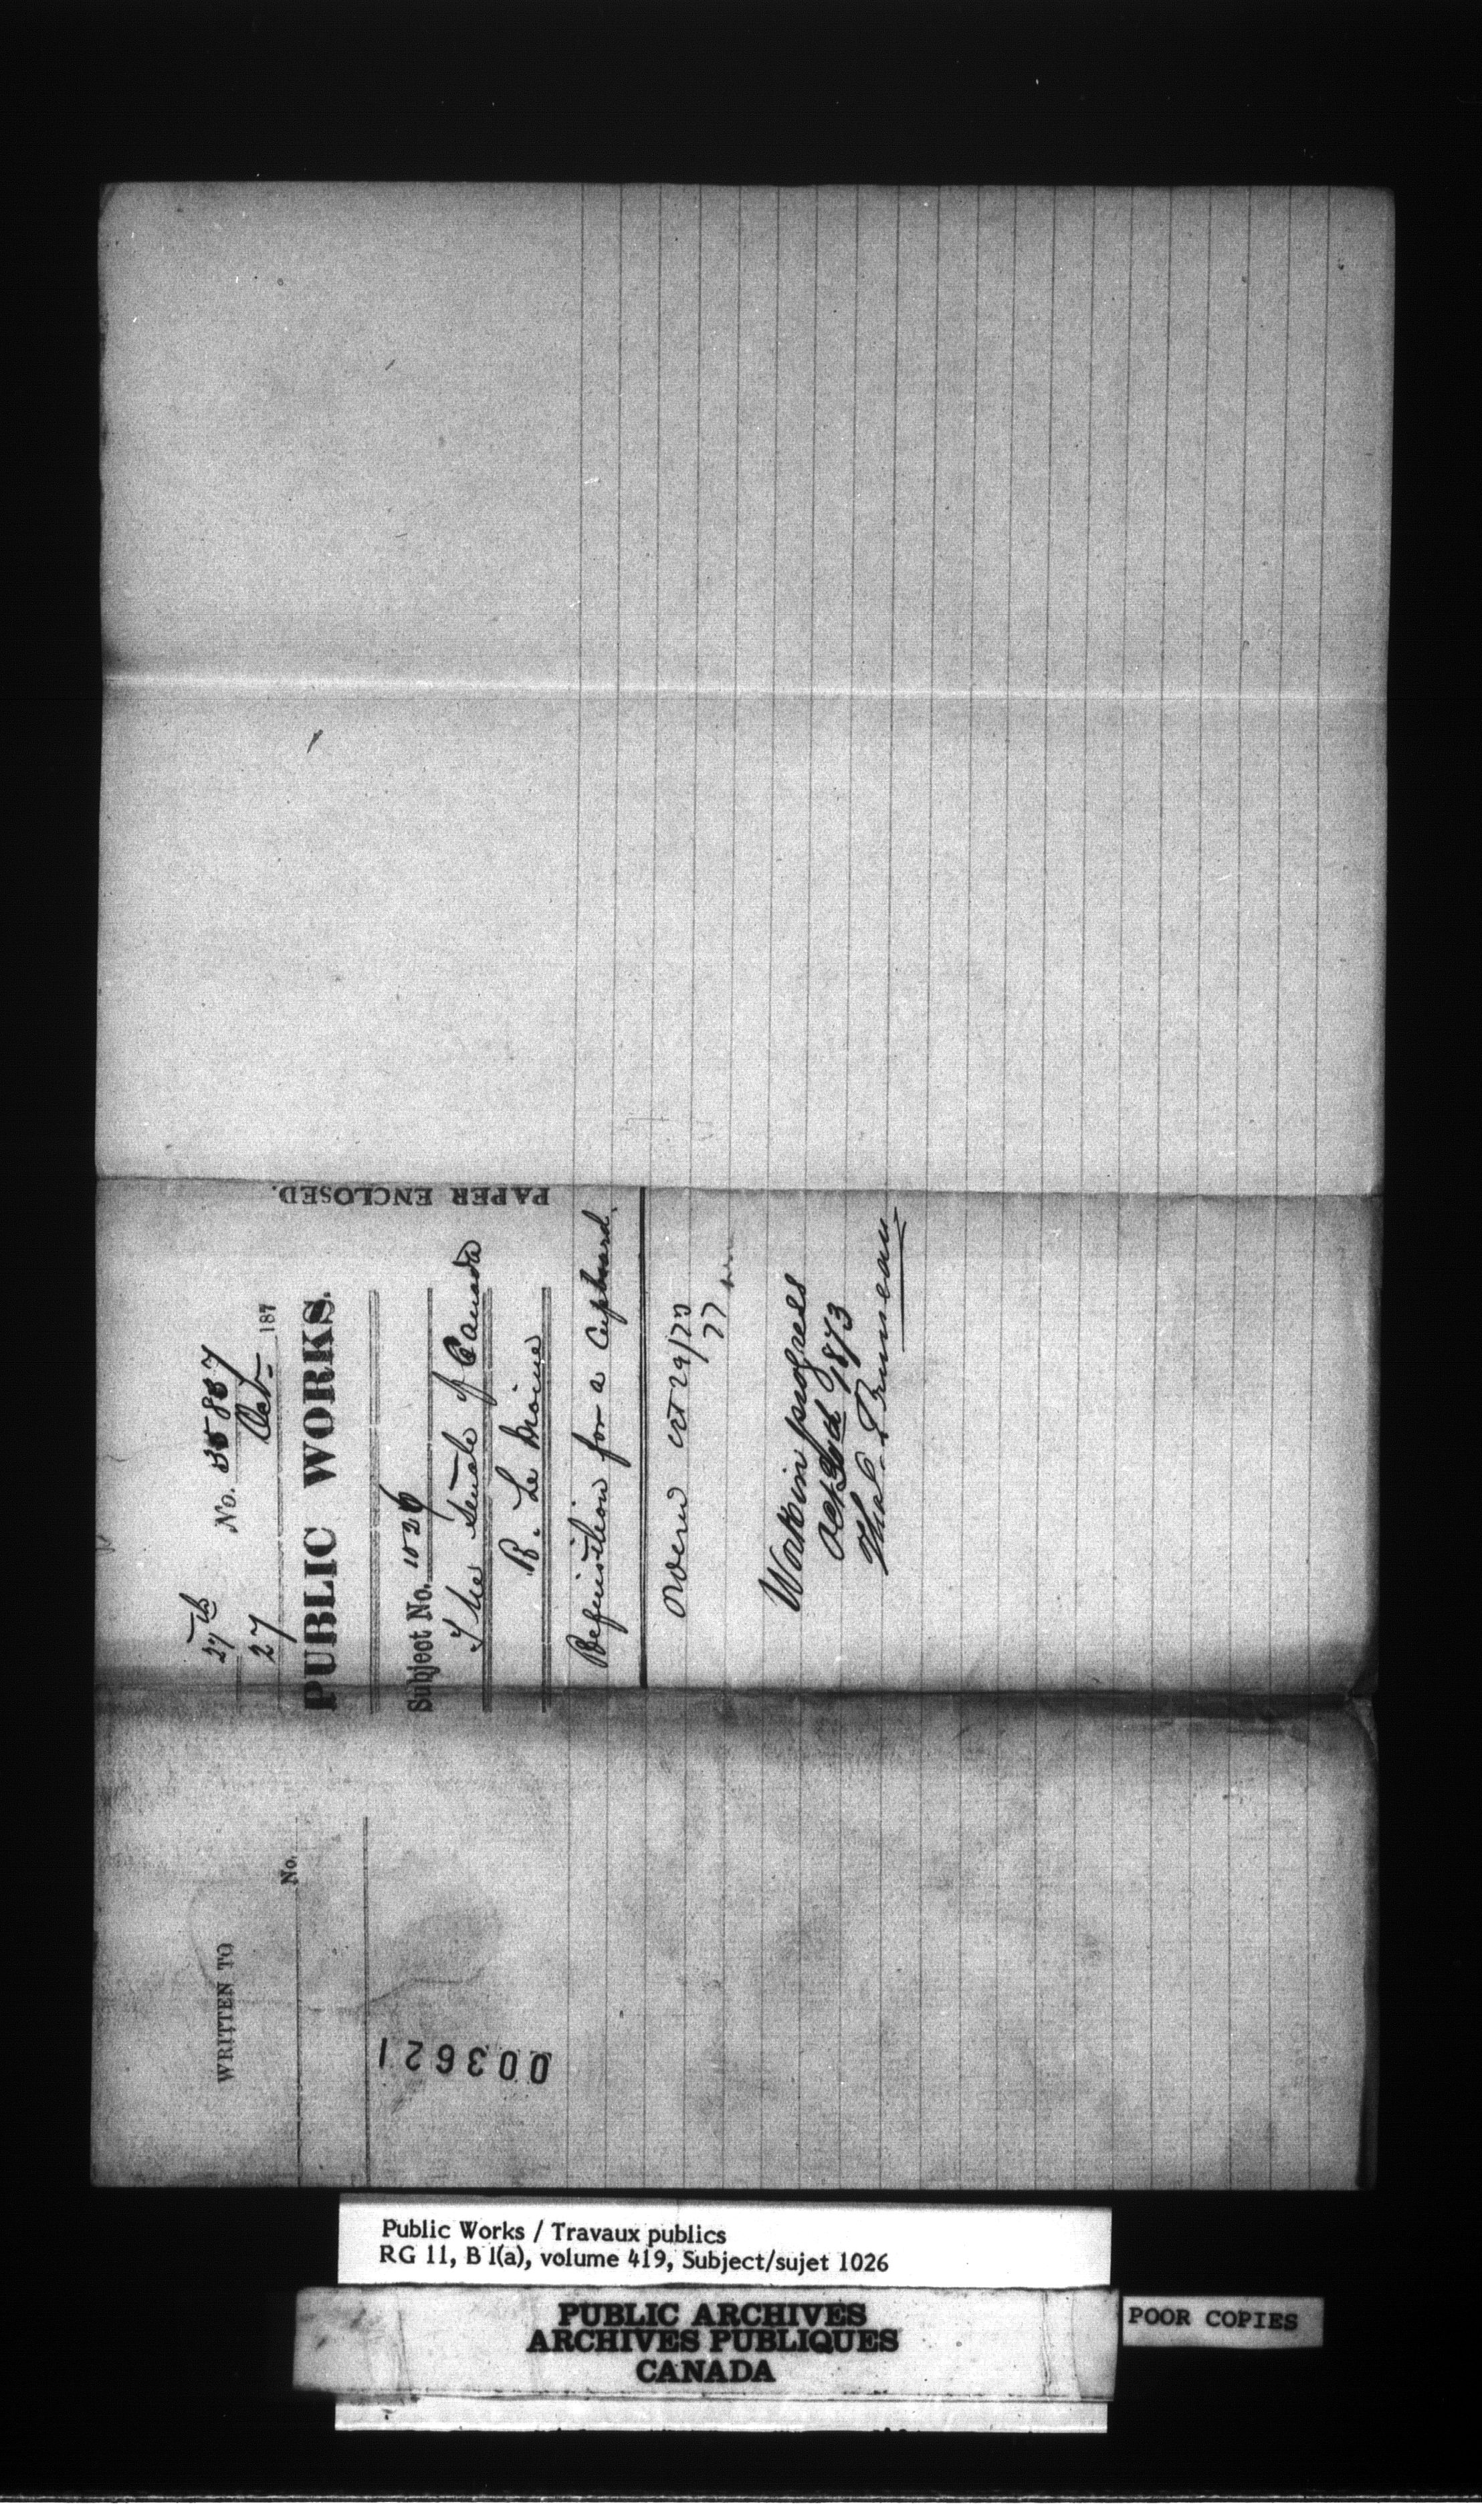 27th No. 35887
27 Oct 187
PUBLIC WORKS.
Subject No. 1026
The Senate of Canada
R. Le Moine
Requisition for a Cupboard.
PAPER ENCLOSED.
Oct 29/73
Work in progress
Oct 30th 1873
WRITTEN TO
No.
003621
Public Works / Travaux publics
RG 11, B 1(a), volume 419, Subject/sujet 1026
PUBLIC ARCHIVES
ARCHIVES PUBLIQUES
CANADA
POOR COPIES